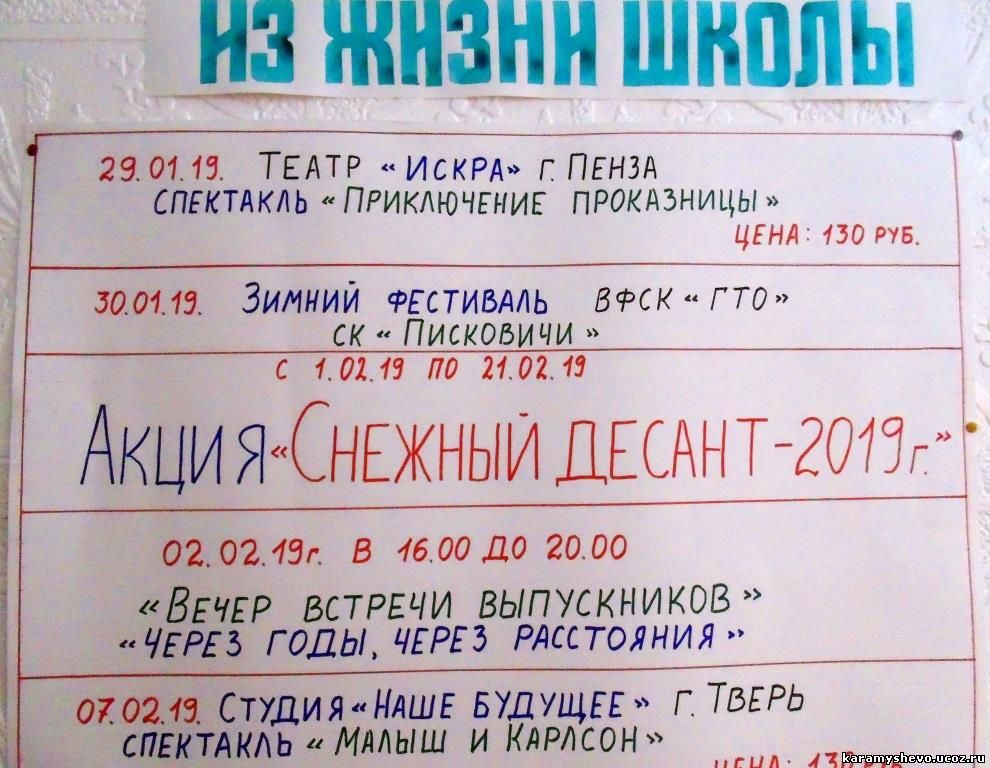 ИЗ ЖИЗНИ ШКОЛЫ
29.01.19. ТЕАТР «ИСКРА» Г. ПЕНЗА
СПЕКТАКЛЬ «ПРИКЛЮЧЕНИЕ ПРОКАЗНИЦЫ»
ЦЕНА: 130 РУБ.
30.01.19. ЗИМНИЙ ФЕСТИВАЛЬ ВФСК «ГТО»
СК «ПИСКОВИЧИ»
С 1.02.19 ПО 21.02.19
АКЦИЯ «СНЕЖНЫЙ ДЕСАНТ-2019г.»
02.02.19г. В 16.00 ДО 20.00
«ВЕЧЕР ВСТРЕЧИ ВЫПУСКНИКОВ»
«ЧЕРЕЗ ГОДЫ, ЧЕРЕЗ РАССТОЯНИЯ»
07.02.19. СТУДИЯ «НАШЕ БУДУЩЕЕ» Г. ТВЕРЬ
СПЕКТАКЛЬ «МАЛЫШ И КАРЛСОН»
ЦЕНА: 130 РУБ.
karamyshevo.ucoz.ru